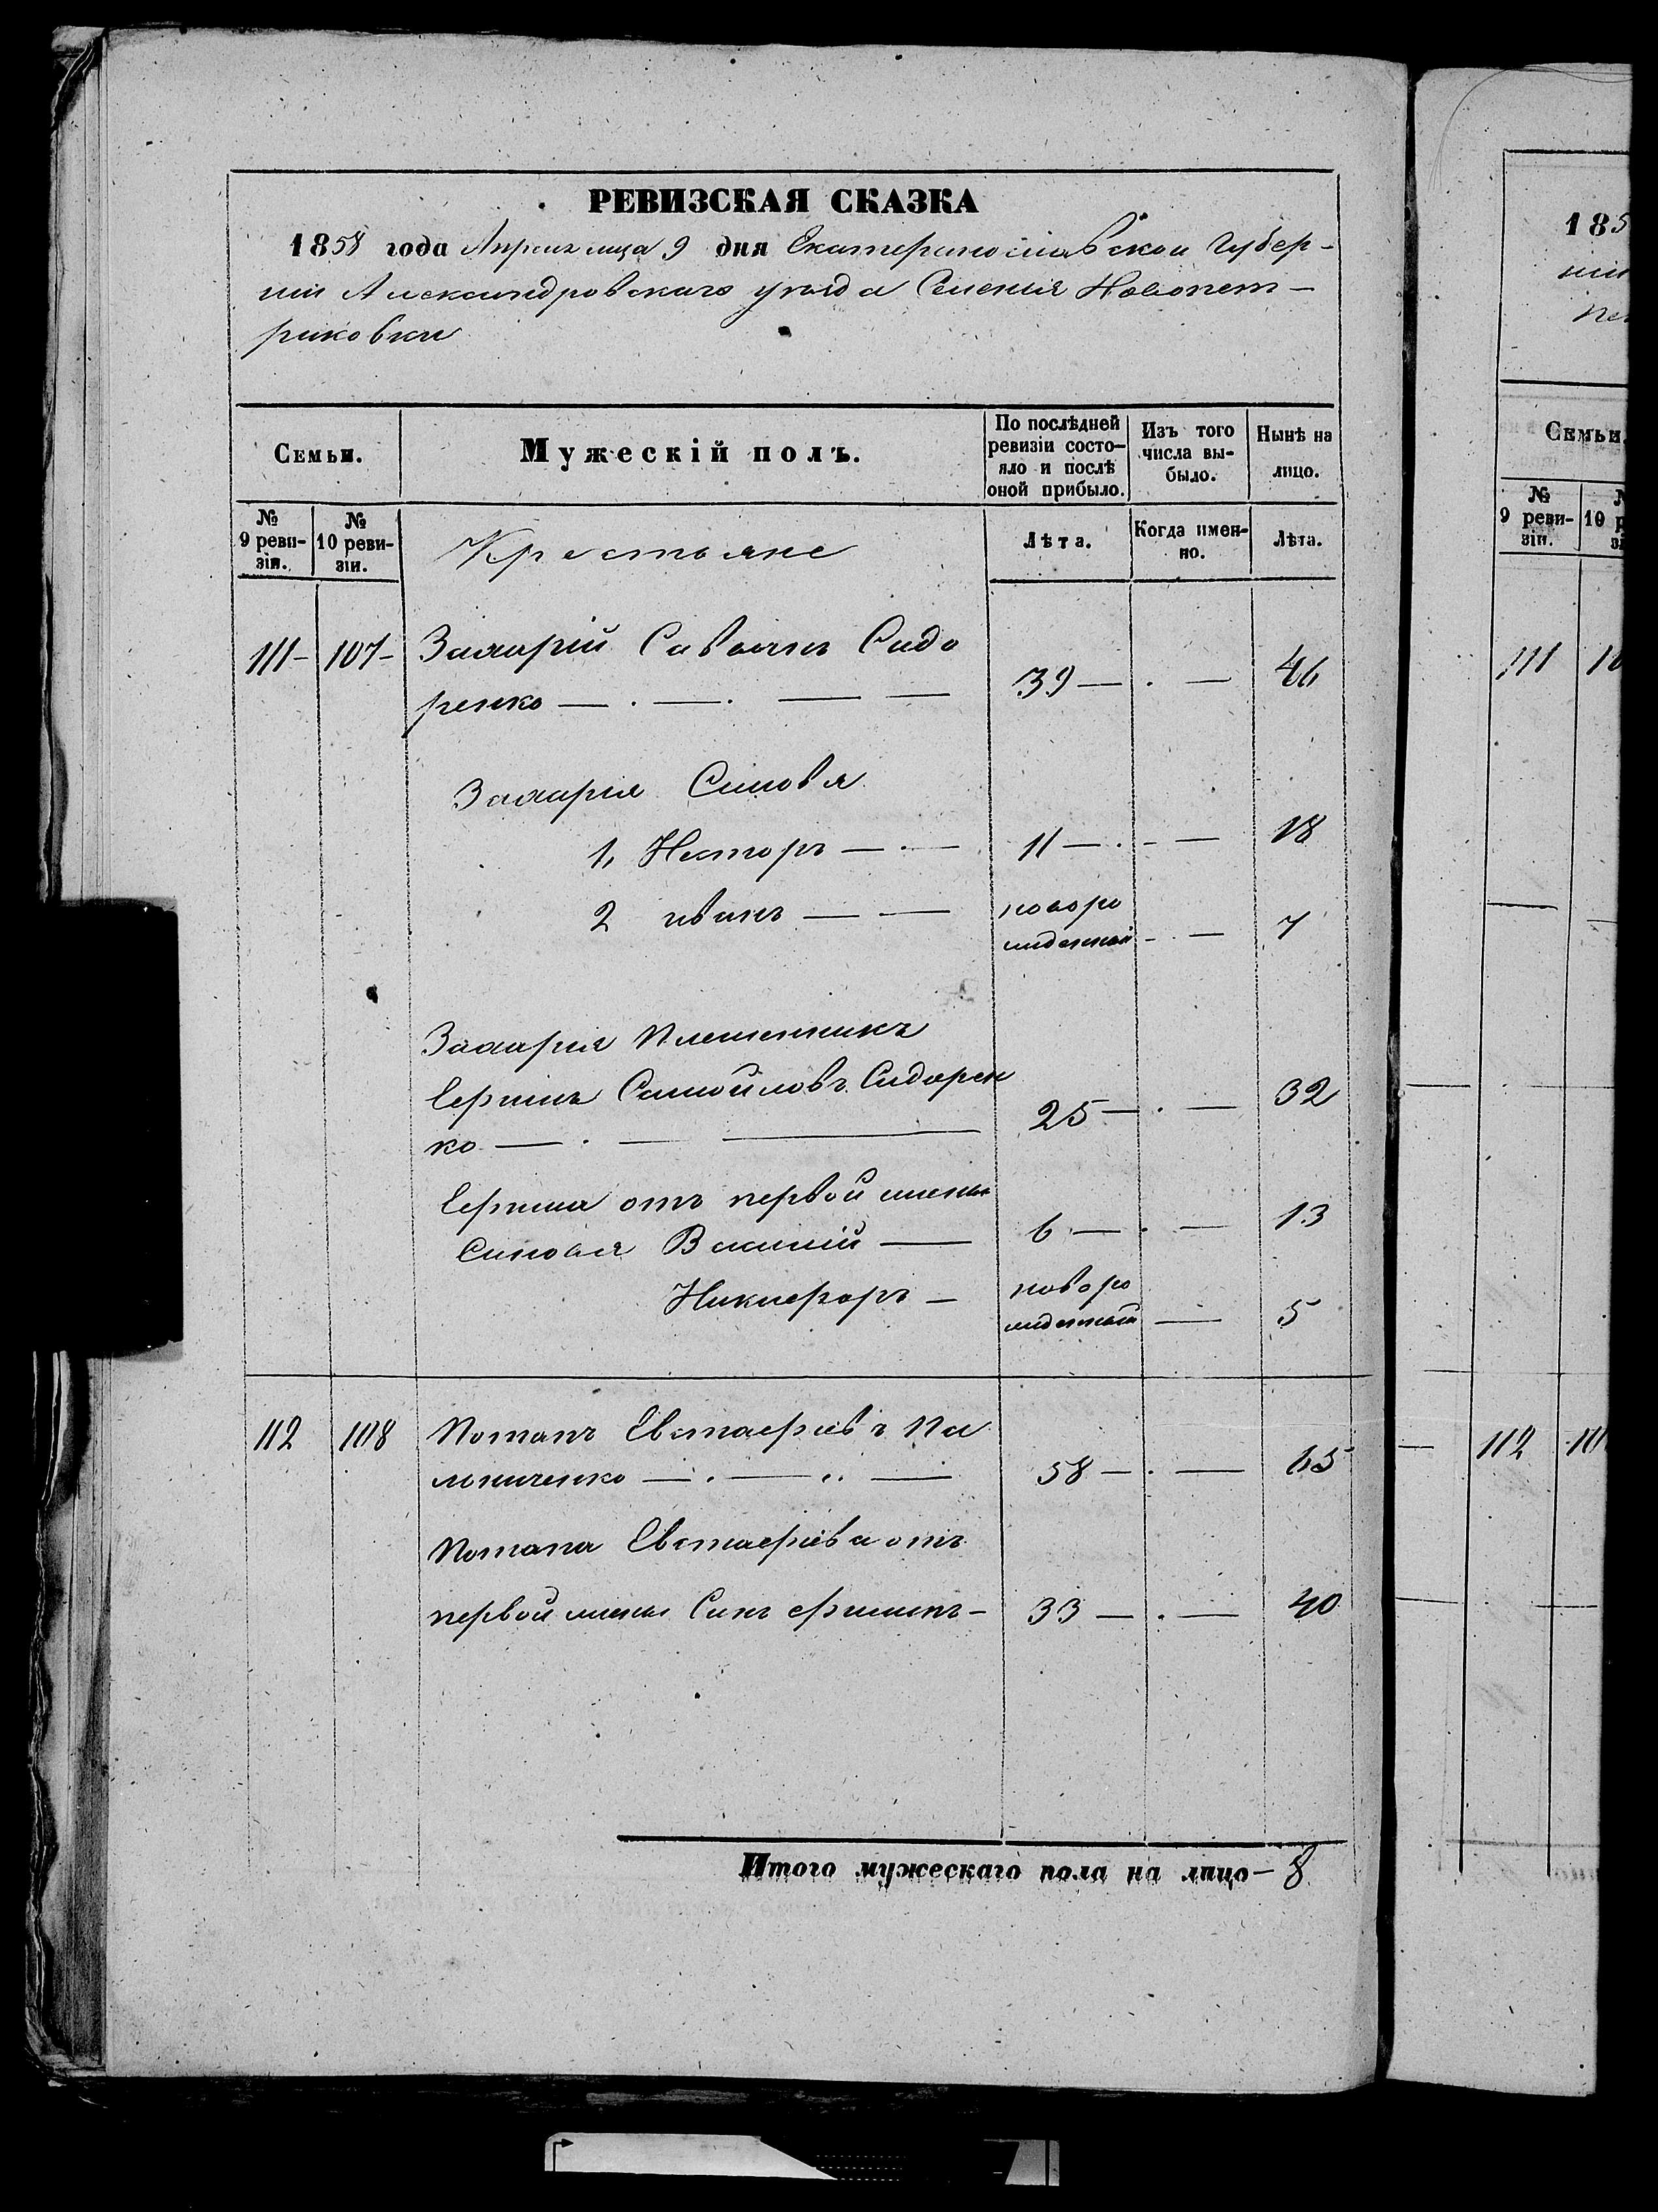 РЕВИЗСКАЯ СКАЗКА
1858 года Апреля мца 9 дня Екатеринославской Губер-
нии Александровскаго уезда Селенія Новопет-
риковки
Семьи.
Мужескій полъ.
По послѣдней ревизіи состо-яло и послѣ оной прибыло.
Изъ того числа вы-было.
Нынѣ на лицо.
№ 9 реви-зіи.
№ 10 реви-зіи.
Крестьяне
Лѣта.
Когда имен-но.
Лѣта.
111- 107- Захарій Савинъ Сидо
ренко — . — . — — 39 — . — 46
Захарія Синовя
1, Несторъ — . — 11 — . - — 18
2 иванъ — — новоро
жденный - . — 7
Захарія Племенникъ
Сидорен
ко — . — — 25 — . — 32
отъ первой жены
Синовя Василій — 6 — . — 13
Никифоръ — новоро
жденный — 5
112 108 Потапъ Евстафіевъ Па
льниченко — . — .. — 58 — . — 65
Потапа Евстафіева отъ
первой жены Синъ ефимъ - 33 — . — 40
Итого мужескаго пола на лицо — 8
185
Семьи.
№ 9 реви-зіи.
111
112